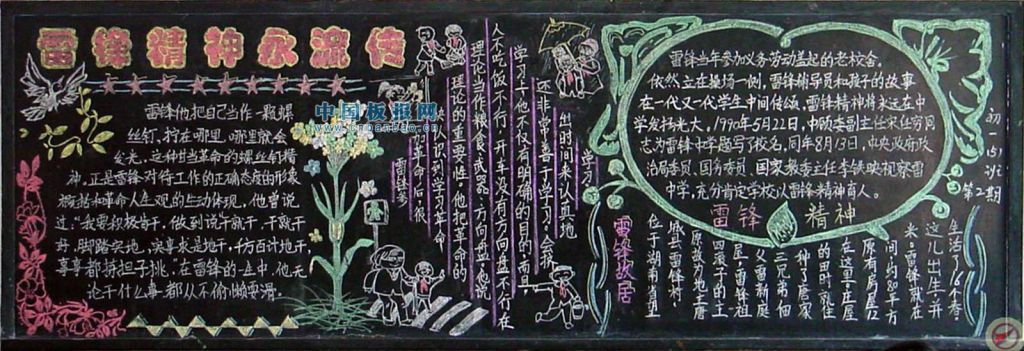 雷锋精神永流传
雷锋他把自己当作一颗螺
丝钉,拧在哪里,哪里就会
发光,这种当革命的螺丝钉精
神,正是雷锋对待工作的正确态度的形象
概括和革命人生观的生动体现,他曾说
过:"我要积极肯干,做到说干就干,干就干
好,脚踏实地,实事求是地干,千方百计地干
事事都抢担子挑。"在雷锋的一生中,他无
论干什么事,都从不偷懒耍滑。
中国板报网
雷锋参
加革命后,很
快认识到学习革命
理论的重要性。他把革命的
理论当作粮食、武器、方向盘,他说
人不吃饭不行,开车没有方向盘不行,在
学习上他不仅有明确的目的,而且
还非常善于学习,会挤
出时间来认真地
学习。
雷锋当年参加义务劳动盖起的老校舍,
依然立在操场一侧,雷锋辅导员和孩子的故事
在一代又一代学生中间传颂,雷锋精神将永远在中
学发扬光大。1990年5月22日,中顾委副主任宋任穷同
志为雷锋中学题写了校名,同年8月13日,中央政府政
治局委员、国务委员、国家教委主任李铁映视察雷
中学,充分肯定学校以雷锋精神育人。
雷锋精神
雷锋故居
位于湖南省望
城县雷锋村,
原故为地主唐
四滚子的土
屋,雷锋祖
父雷新庭
三兄弟佃
种了唐家
的田时就住
在这里,庄屋
原有房屋12
间,约80平方
米。雷锋就在
这儿出生,并
生活了16个春
初一15班
第2期